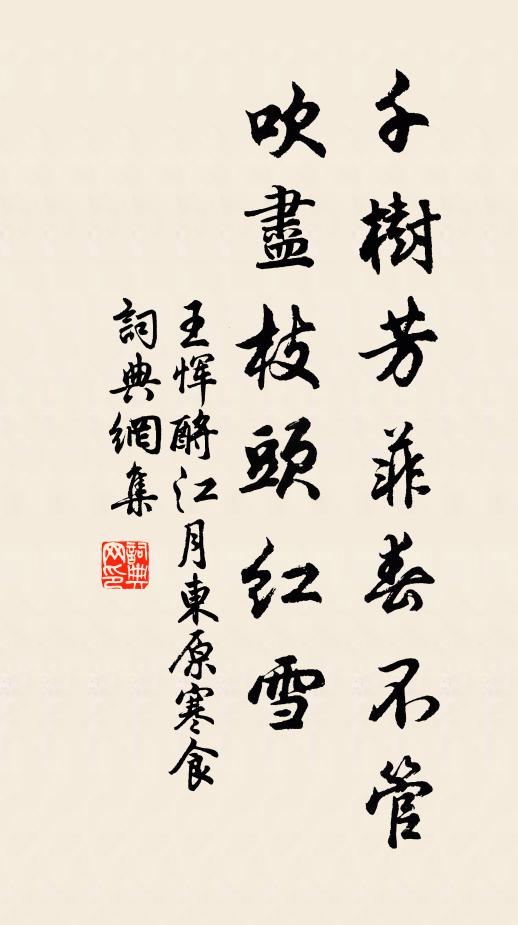 千樹芳菲春不管
吹盡枝頭紅雪
王恽酹江月東原寒食
詞典網集
詞典网印